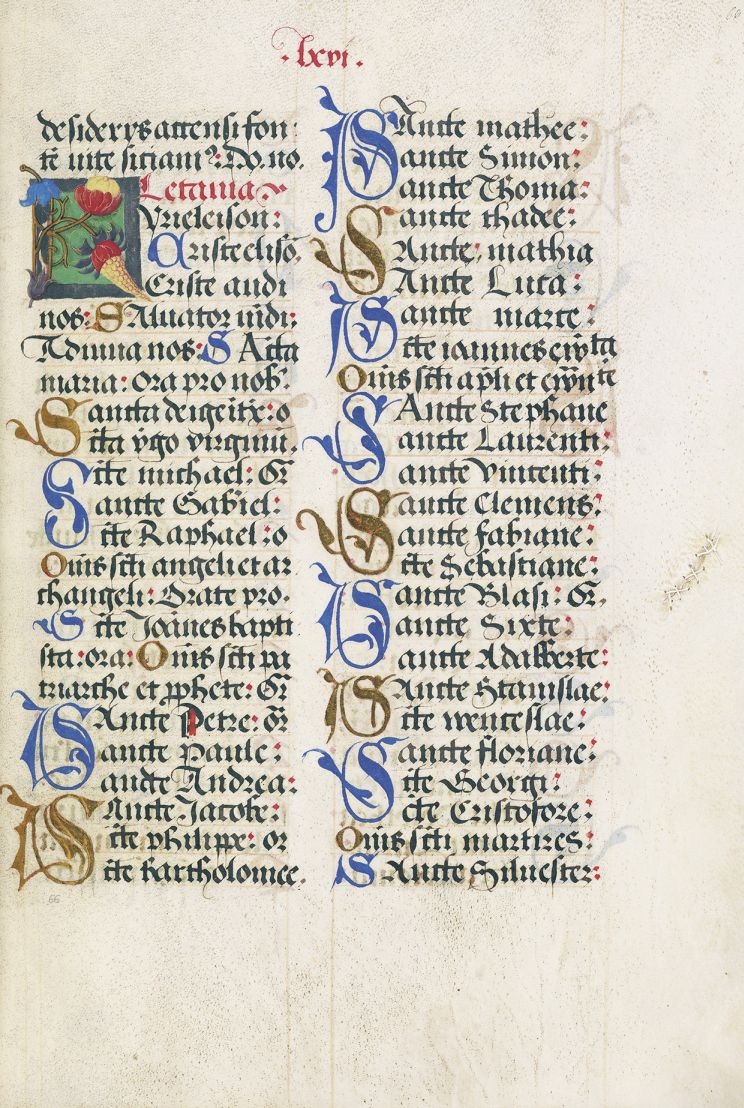 .lxvi.
desiderys accensi fon
te vite sitiam9: Do. no.
Letania
Kyrieleison:
Cristeeliso.
Criste audi
nos: SAluator mūdi:
Adiuua nos: SActa
maria: ora pro nob.
Sancta dei geitx: o
Scta v̄go virginū.
Scte michael: Or
Sancte Gabriel:
Scte Raphael: o
Om̄s scti angeli et ar
changeli: Orate pro.
Scte Joānes bapti
sta: ora: Om̄s scti pa
triarche et p̄phete: Or
SAncte Petre: or
Sancte Paule:
Sancte Andrea:
SAncte Jacobe:
Scte philippe: or
Scte bartholomee.
66
SAncte mathee:
Sancte Simon:
Sancte Thoma:
Sancte thadee:
SAncte: mathia
SAncte Luca:
Sancte marce:
Scte ioannes ew̄ta
Om̄s scti apli et ew̄nte
SAncte Stephane
Sancte Laurenti:
Sancte Vincenti:
Sancte Clemens:
Sancte fabiane:
Scte Sebastiane:
Sancte Blasi: Or.
Sancte Sixte:
Sancte Adalberte:
SAncte Stanislae:
Scte wenceslae:
Sancte floriane:
Scte Georgi:
Scte Cristofore:
Om̄s scti martires:
SAncte Siluester: